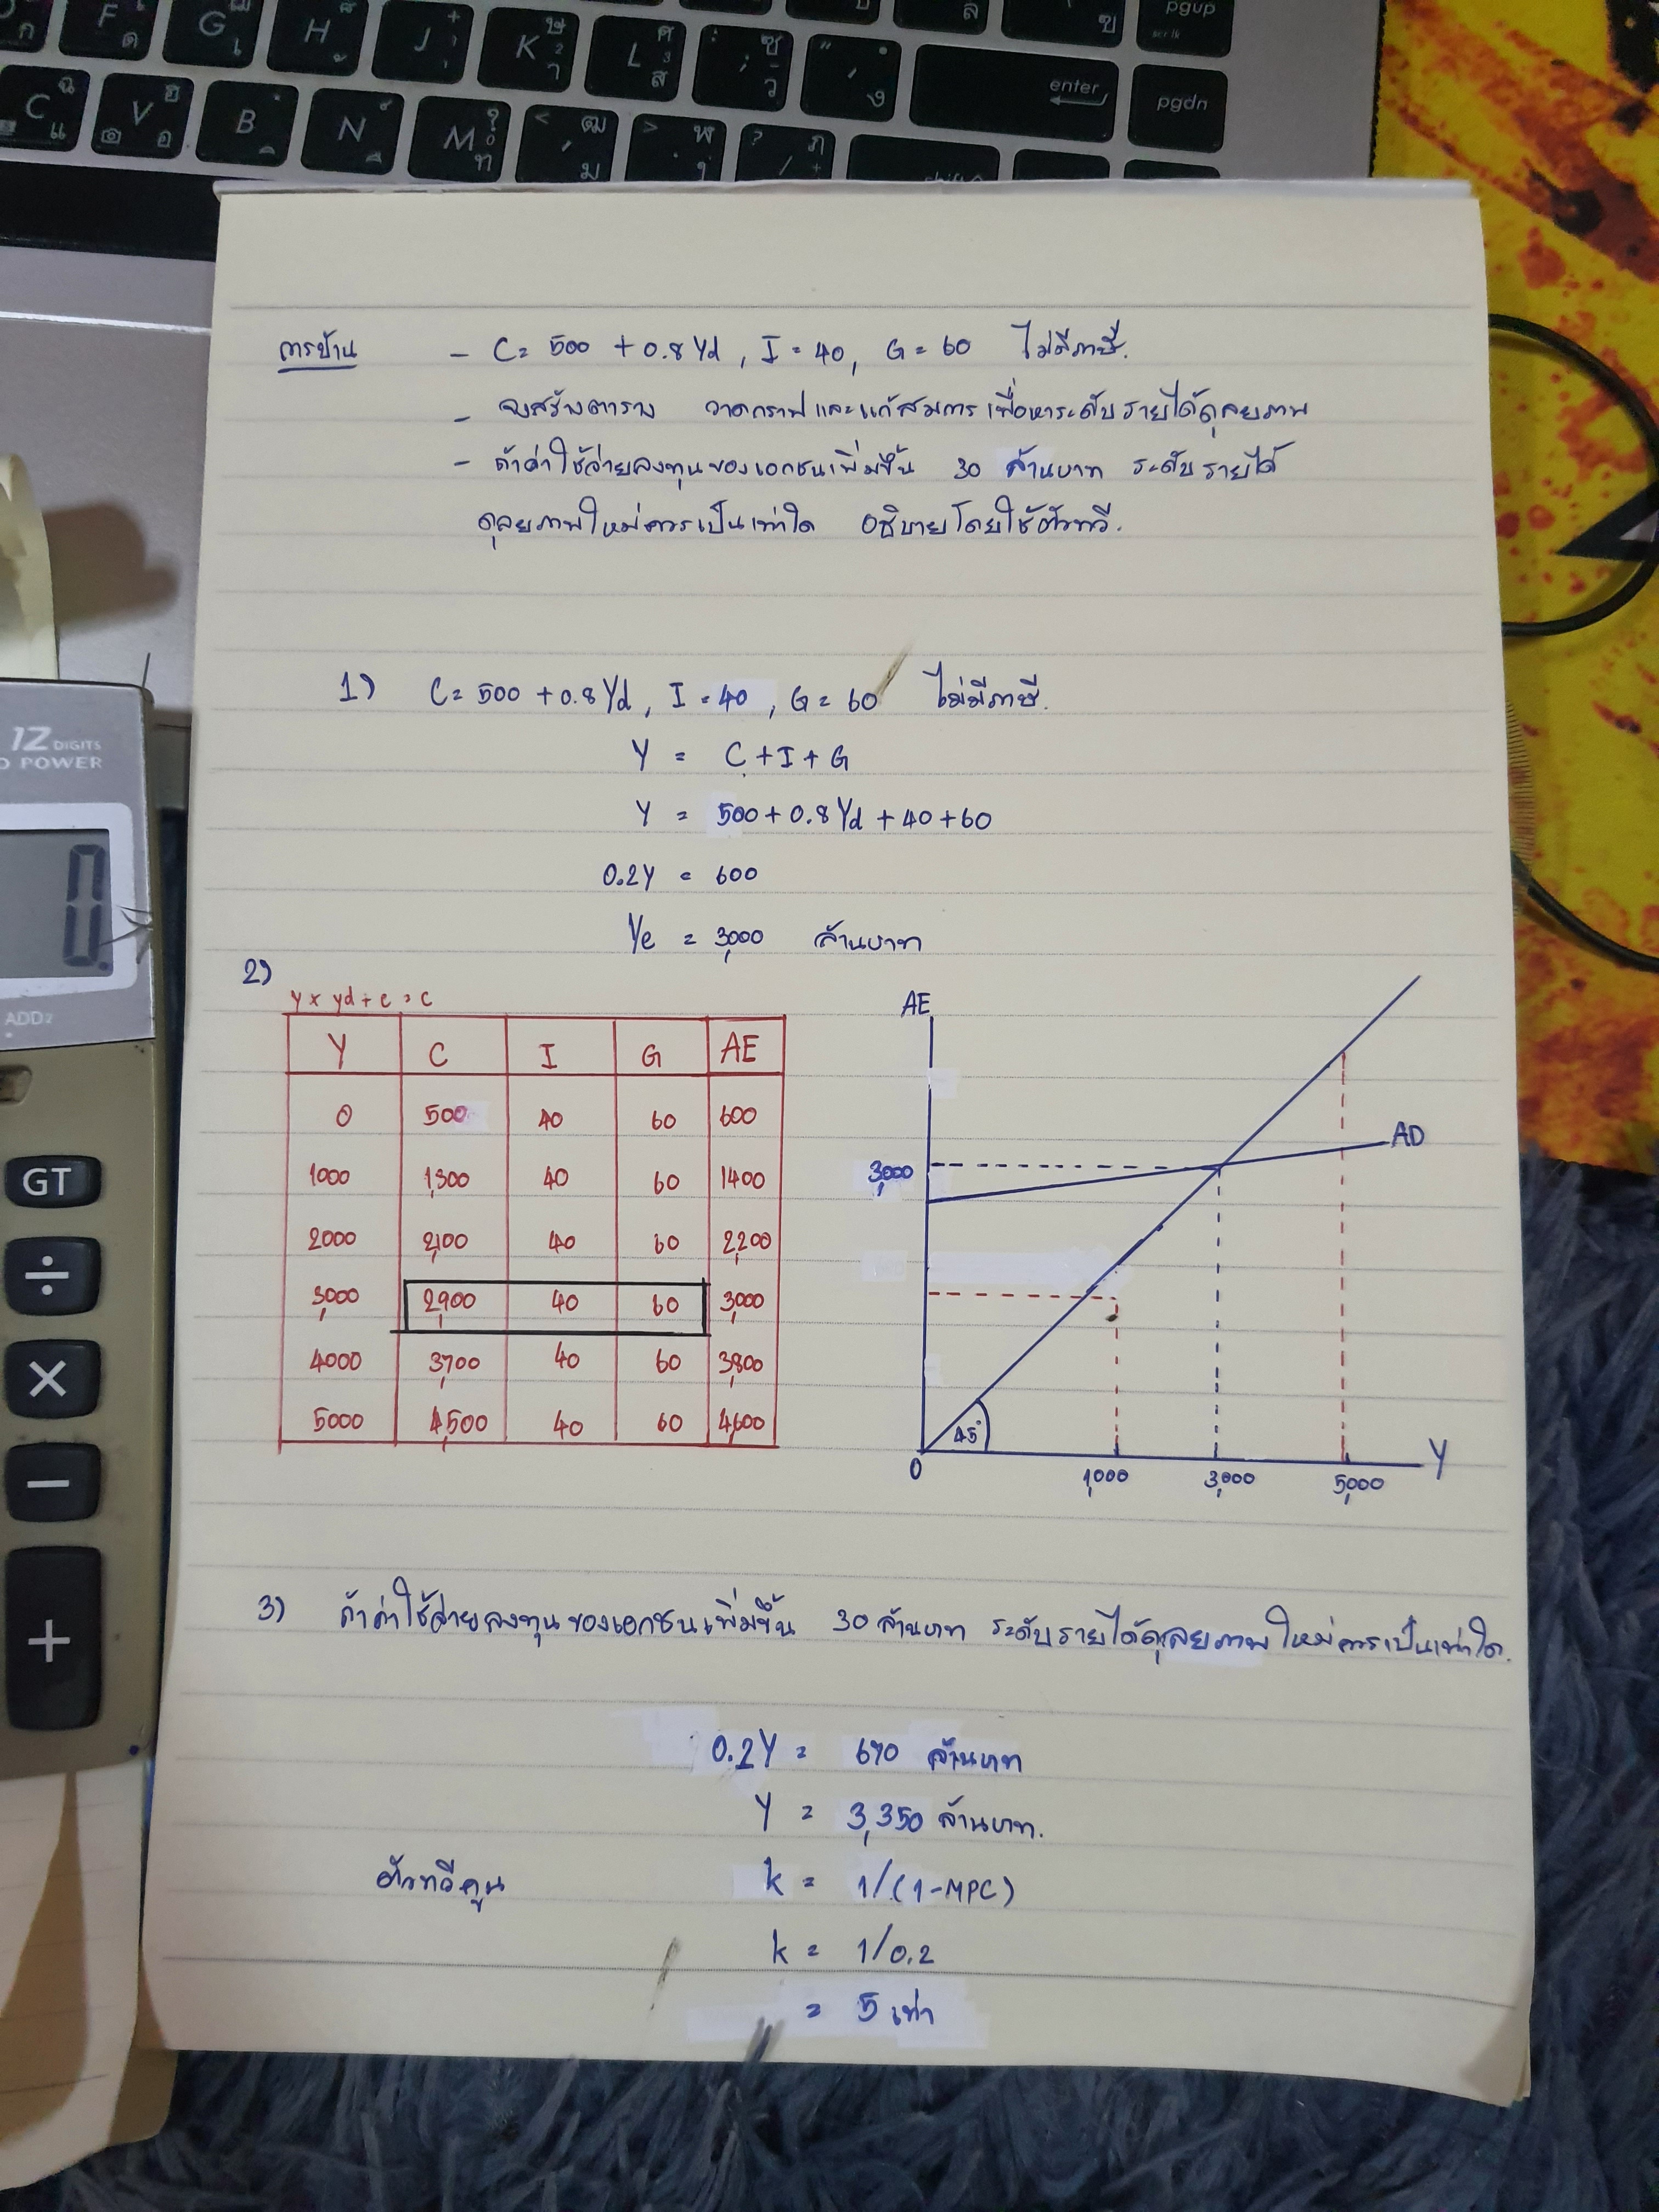 F ด
G เ
H ้
J ่
K ษ 2 า
L ศ 3 ส
: ; ซ ว
" ' ง
enter
pgup
scr lk
pgdn
C ฉ แ
V ฮ อ
B
N
M ? ท
< , ฒ ม
> . ฬ ใ
? / ฦ
shift
การบ้าน - C = 500 + 0.8 Yd , I = 40, G = 60 ไม่มีภาษี.
- จงสร้างตาราง วาดกราฟและแก้สมการเพื่อหาระดับรายได้ดุลยภาพ
- ถ้าค่าใช้จ่ายลงทุนของเอกชนเพิ่มขึ้น 30 ล้านบาท ระดับรายได้
ดุลยภาพใหม่ควรเป็นเท่าใด อธิบายโดยใช้ตัวทวี.
1) C = 500 + 0.8 Yd , I = 40 , G = 60 ไม่มีภาษี.
Y = C + I + G
Y = 500 + 0.8 Yd + 40 + 60
0.2Y = 600
Ye = 3,000 ล้านบาท
12 DIGITS
POWER
0.
ADD2
GT
÷
×
−
+
2)
y x yd + c = c
Y C I G AE
0 500 40 60 600
1000 1,300 40 60 1400
2000 2,100 40 60 2,200
3,000 2,900 40 60 3,000
4000 3,700 40 60 3,800
5000 4,500 40 60 4,600
AE
AD
3,000
45°
0 1,000 3,000 5,000 Y
3) ถ้าค่าใช้จ่ายลงทุนของเอกชนเพิ่มขึ้น 30 ล้านบาท ระดับรายได้ดุลยภาพใหม่ควรเป็นเท่าใด.
0.2Y = 670 ล้านบาท
Y = 3,350 ล้านบาท.
ตัวทวีคูน k = 1/(1-MPC)
k = 1/0.2
= 5 เท่า